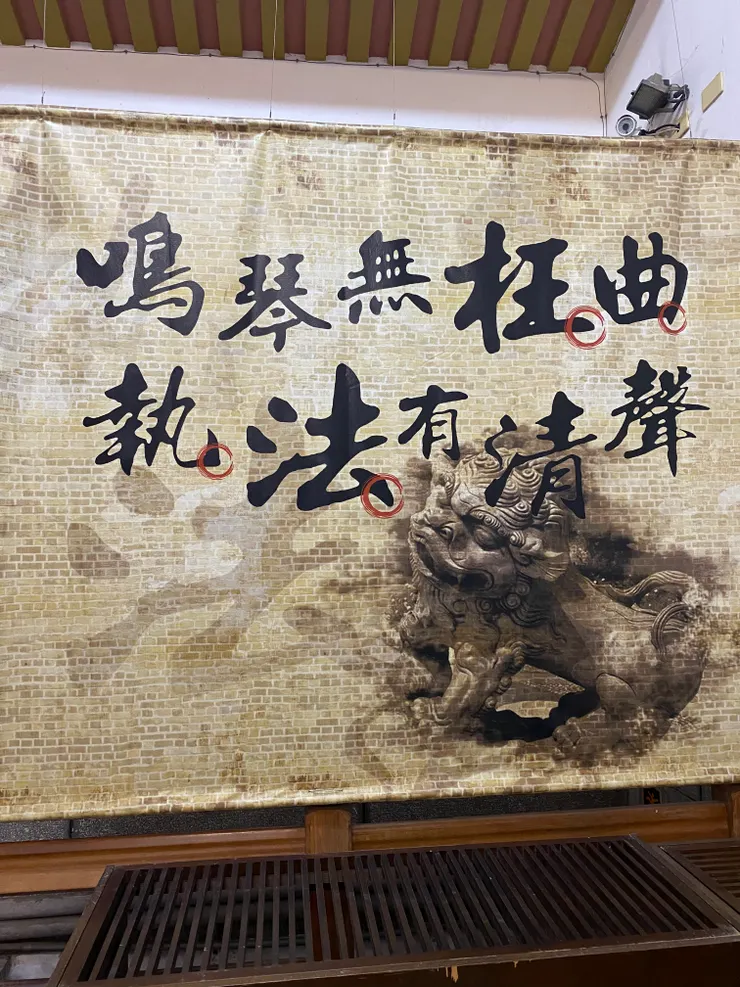 鳴琴無枉曲
執法有清聲